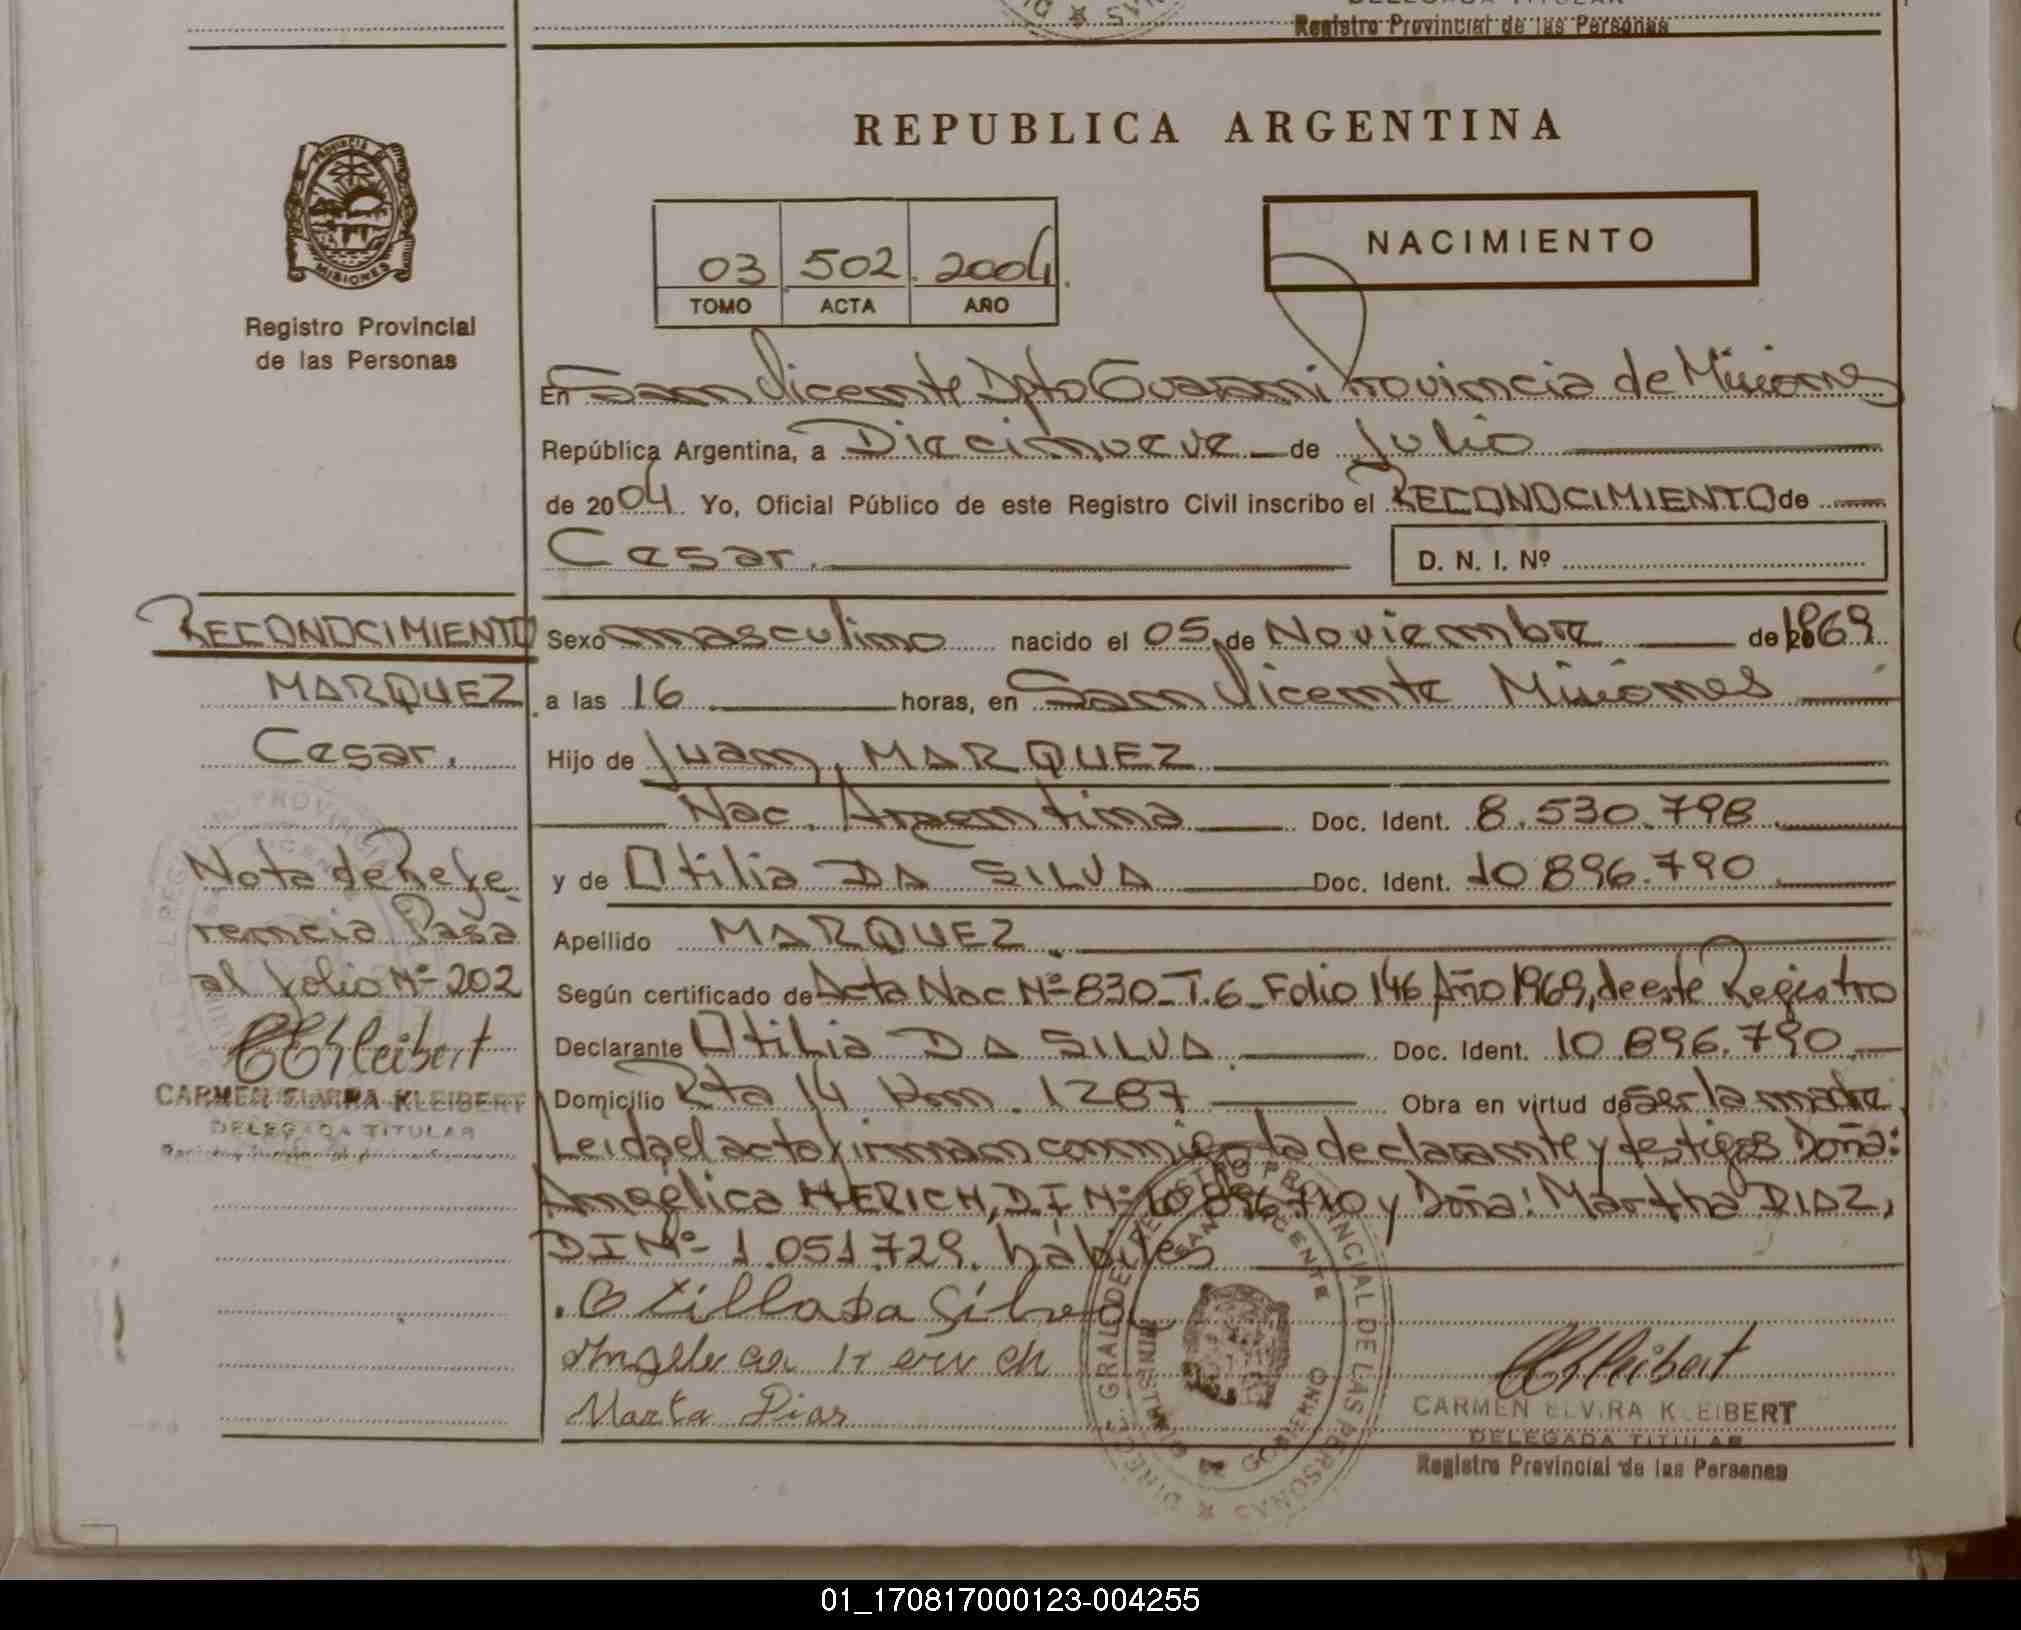 DELEGADA TITULAR
Registro Provincial de las Personas
REPUBLICA ARGENTINA
PROVINCIA DE
MISIONES
Registro Provincial
de las Personas
03 502 2004
TOMO ACTA AÑO
NACIMIENTO
En San Vicente Dpto Guarani Provincia de Misiones
República Argentina, a Diecinueve de Julio
de 2004 Yo, Oficial Público de este Registro Civil inscribo el RECONOCIMIENTO de
Cesar. D. N. I. Nº
RECONOCIMIENTO
MARQUEZ
Cesar.
Nota de Refe
rencia Pasa
al folio Nº 202
CEKleibert
CARMEN ELVIRA KLEIBERT
DELEGADA TITULAR
Sexo masculino nacido el 05 de Noviembre de 1969
a las 16 horas, en San Vicente Misiones
Hijo de Juan, MARQUEZ
Nac. Argentina Doc. Ident. 8.530.798
y de Otilia DA SILVA Doc. Ident. 10.896.790
Apellido MARQUEZ.
Según certificado de Acta Nac Nº 830_T.6_Folio 146 Año 1969, de este Registro
Declarante Otilia DA SILVA. Doc. Ident. 10.896.790.
Domicilio Rta 14 Km. 1287 Obra en virtud de ser la madre.
Leida el acta firman conmigo la declarante y testigos Doña:
Angélica HERICH, D.I Nº 10.896.710 y Doña: Martha DIAZ,
DI Nº 1.051.729. hábiles
Otilla Da Silva
Angelica Herich
Marta Dias
DIREC. GRAL. DEL REGISTRO PROVINCIAL DE LAS PERSONAS
SAN VICENTE
MINISTERIO DE GOBIERNO
CEKleibert
CARMEN ELVIRA KLEIBERT
DELEGADA TITULAR
Registro Provincial de las Personas
01_170817000123-004255